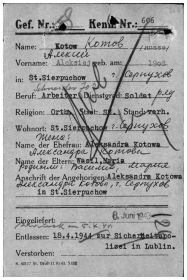 Gef. Nr. Kenn Nr. 606
Name: Kotow Котов
Алексий
Vorname: Aleksiej geb. am 1905
in St.Sierpuchow г. Серпухов
Beruf: Arbeiter Dienstgrad: Soldat ряд
Religion: Orth. St. Stand: verh.
Wohnort: St.Sierpuchow г. Серпухов
Name der Ehefrau: Aleksandra Kotowa
Александра Котова
Name der Eltern: Wasil, Maria
Василий Мария
Anschrift der Angehörigen: Aleksandra Kotowa
Александра Котова, г. Серпухов
in St.Sierpuchow
8. Juni 1943
Eingeliefert:
Entlassen: 18.4.1944 zur Sicherheitspolizei in Lublin.
Verstorben: